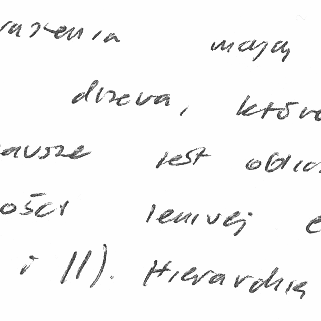 rażenia mają
drzewa, które
awsze jest obli
ości leniwej e
i II). Hierarchia